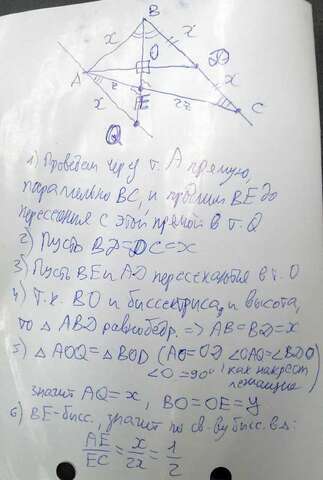 B
x
x
O
D
A
z
E
x
2z
C
x
Q
1) Проведем через т. A прямую,
параллельно BC, и продлим BE до
пересечения с этой прямой в т. Q
2) Пусть BD=DC=x
3) Пусть BE и AD пересекаются в т. O
4) Т.к. BO и биссектриса, и высота,
то △ABD равнобедр. => AB=BD=x
5) △AOQ=△BOD (AO=OD ∠OAQ=∠BDO
∠O=90° как накрест
лежащие)
значит AQ=x, BO=OE=y
6) BE-бисс., значит по св-ву бисс. в △:
AE/EC = x/2x = 1/2